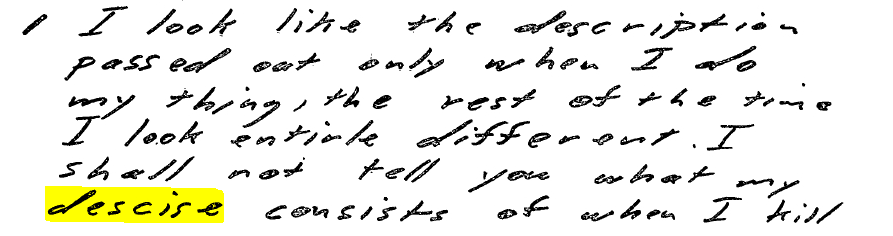 1 I look like the description
passed out only when I do
my thing, the rest of the time
I look entirle different. I
shall not tell you what my
descise consists of when I kill